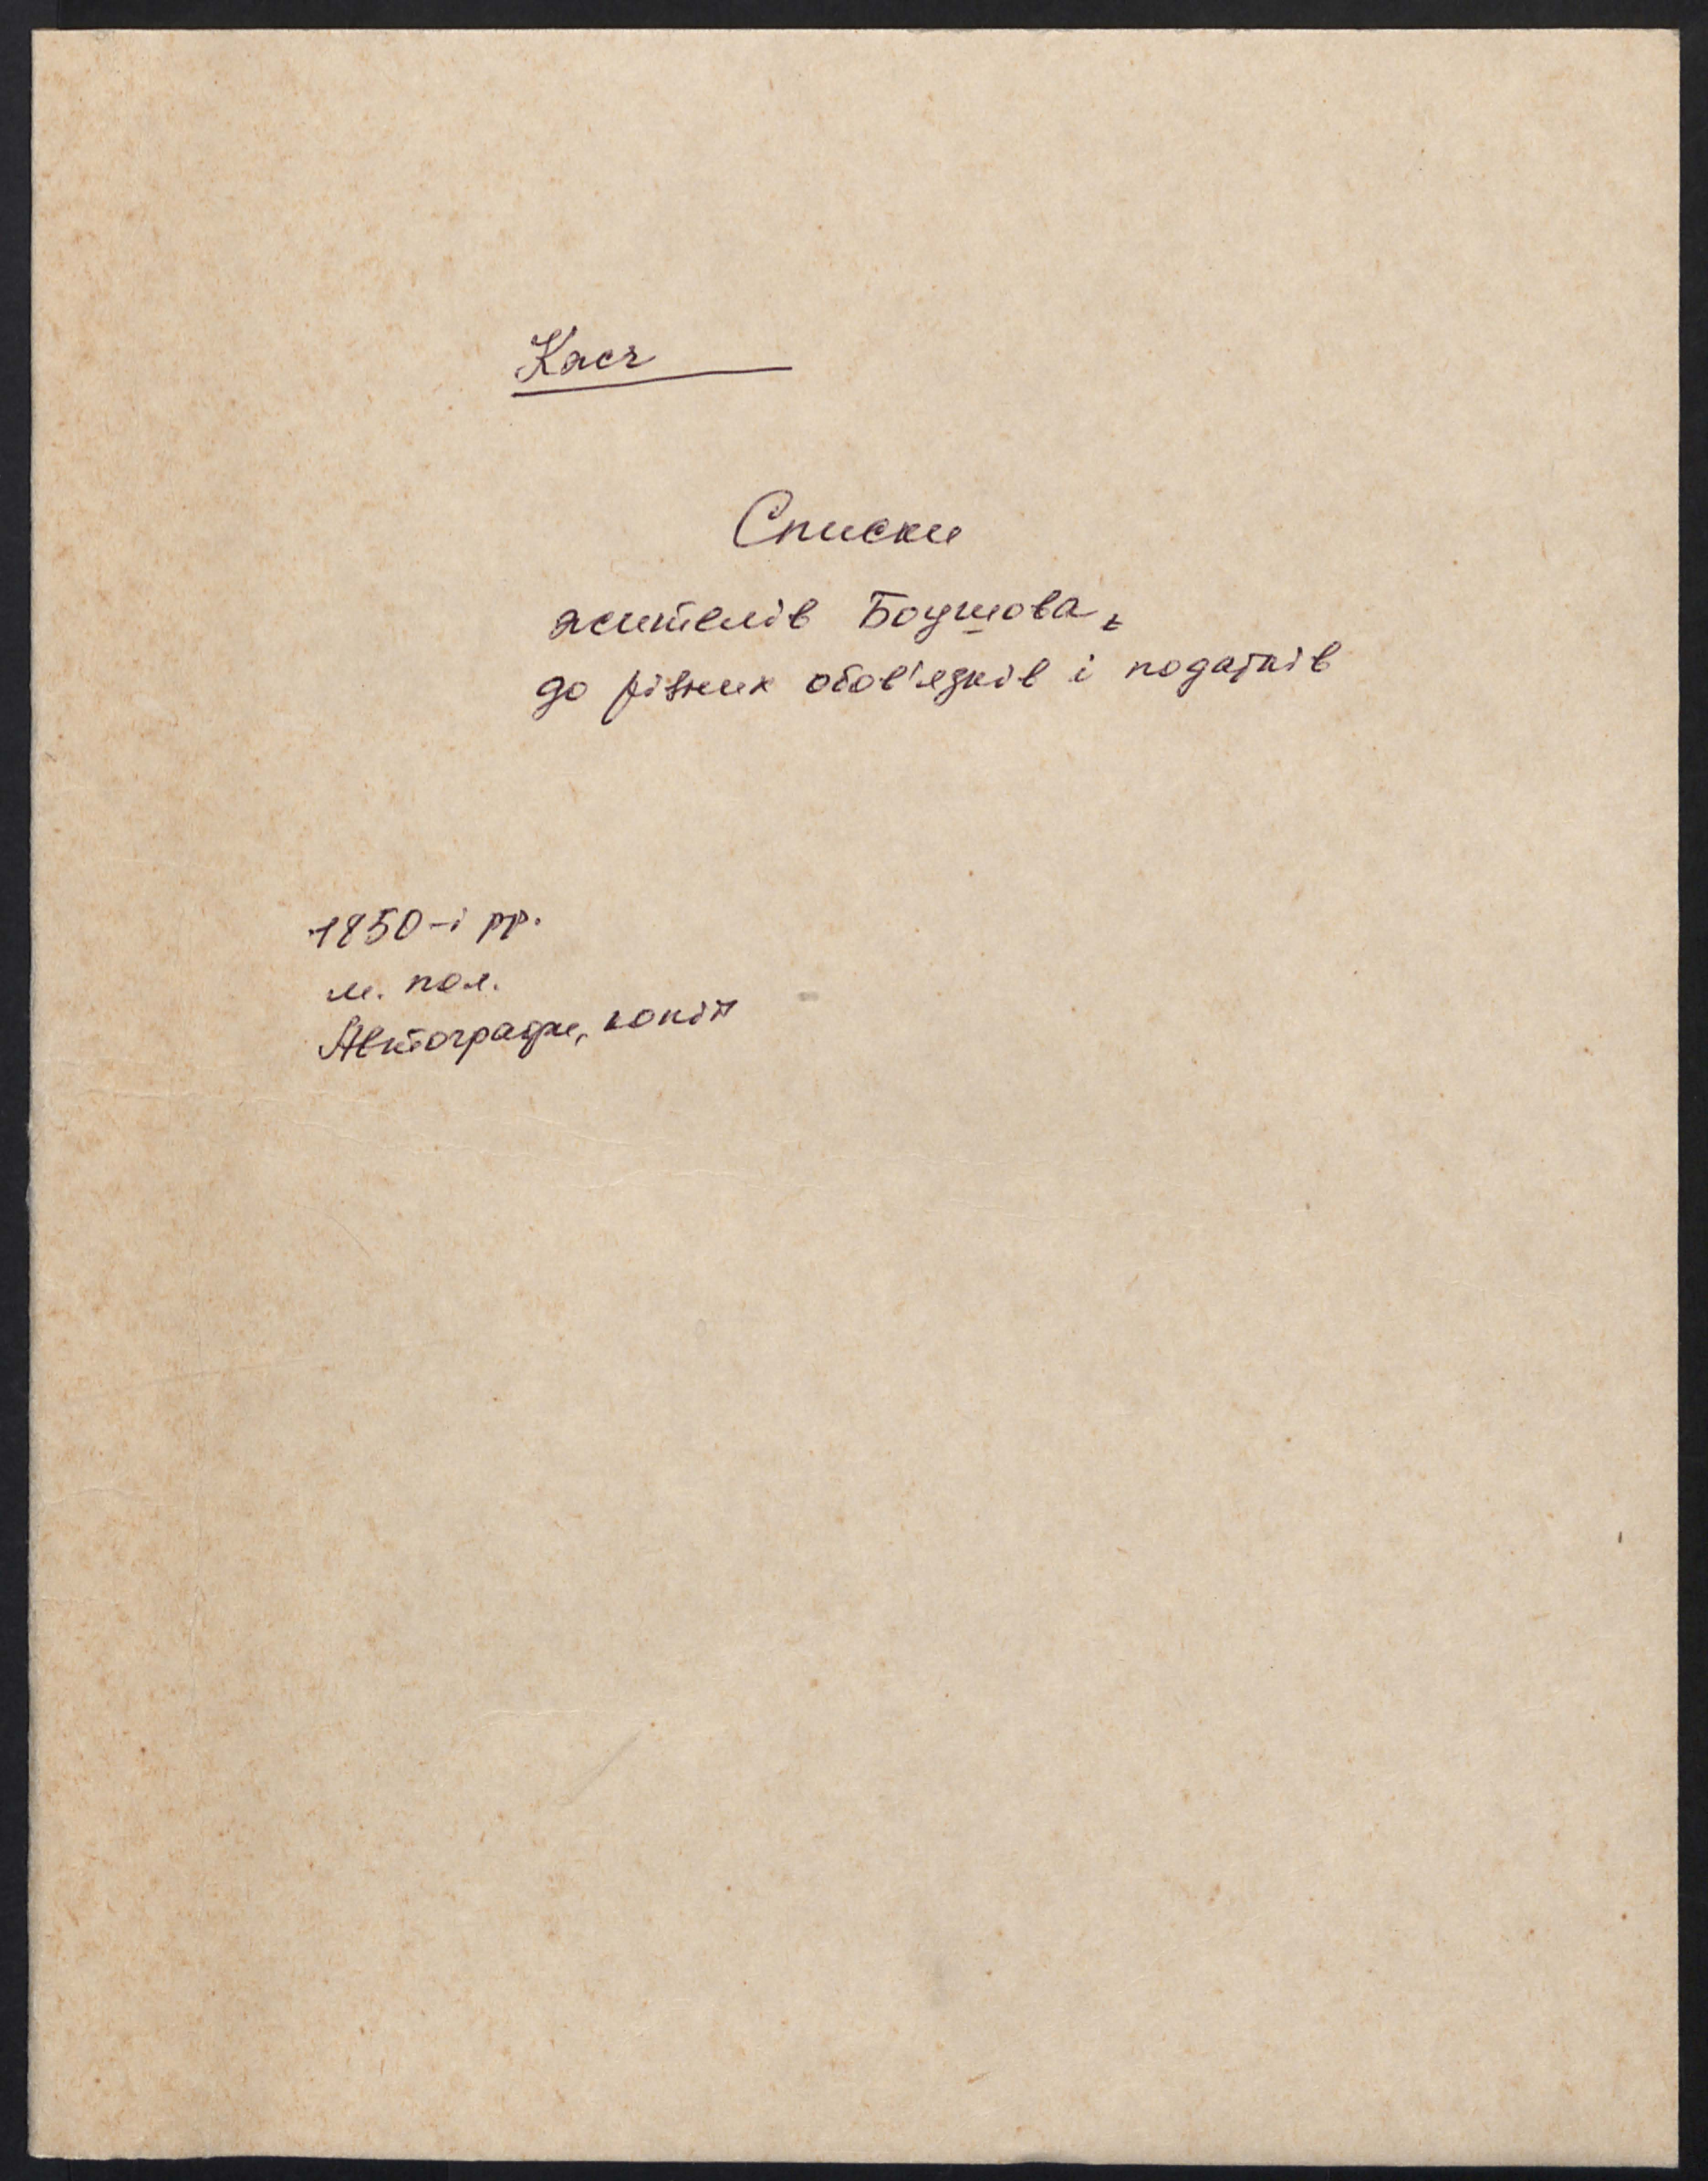 Кася
Списки
жителів Боушова,
до різних обов'язків і податків
1850-і рр.
м. пол.
Автографи, копія